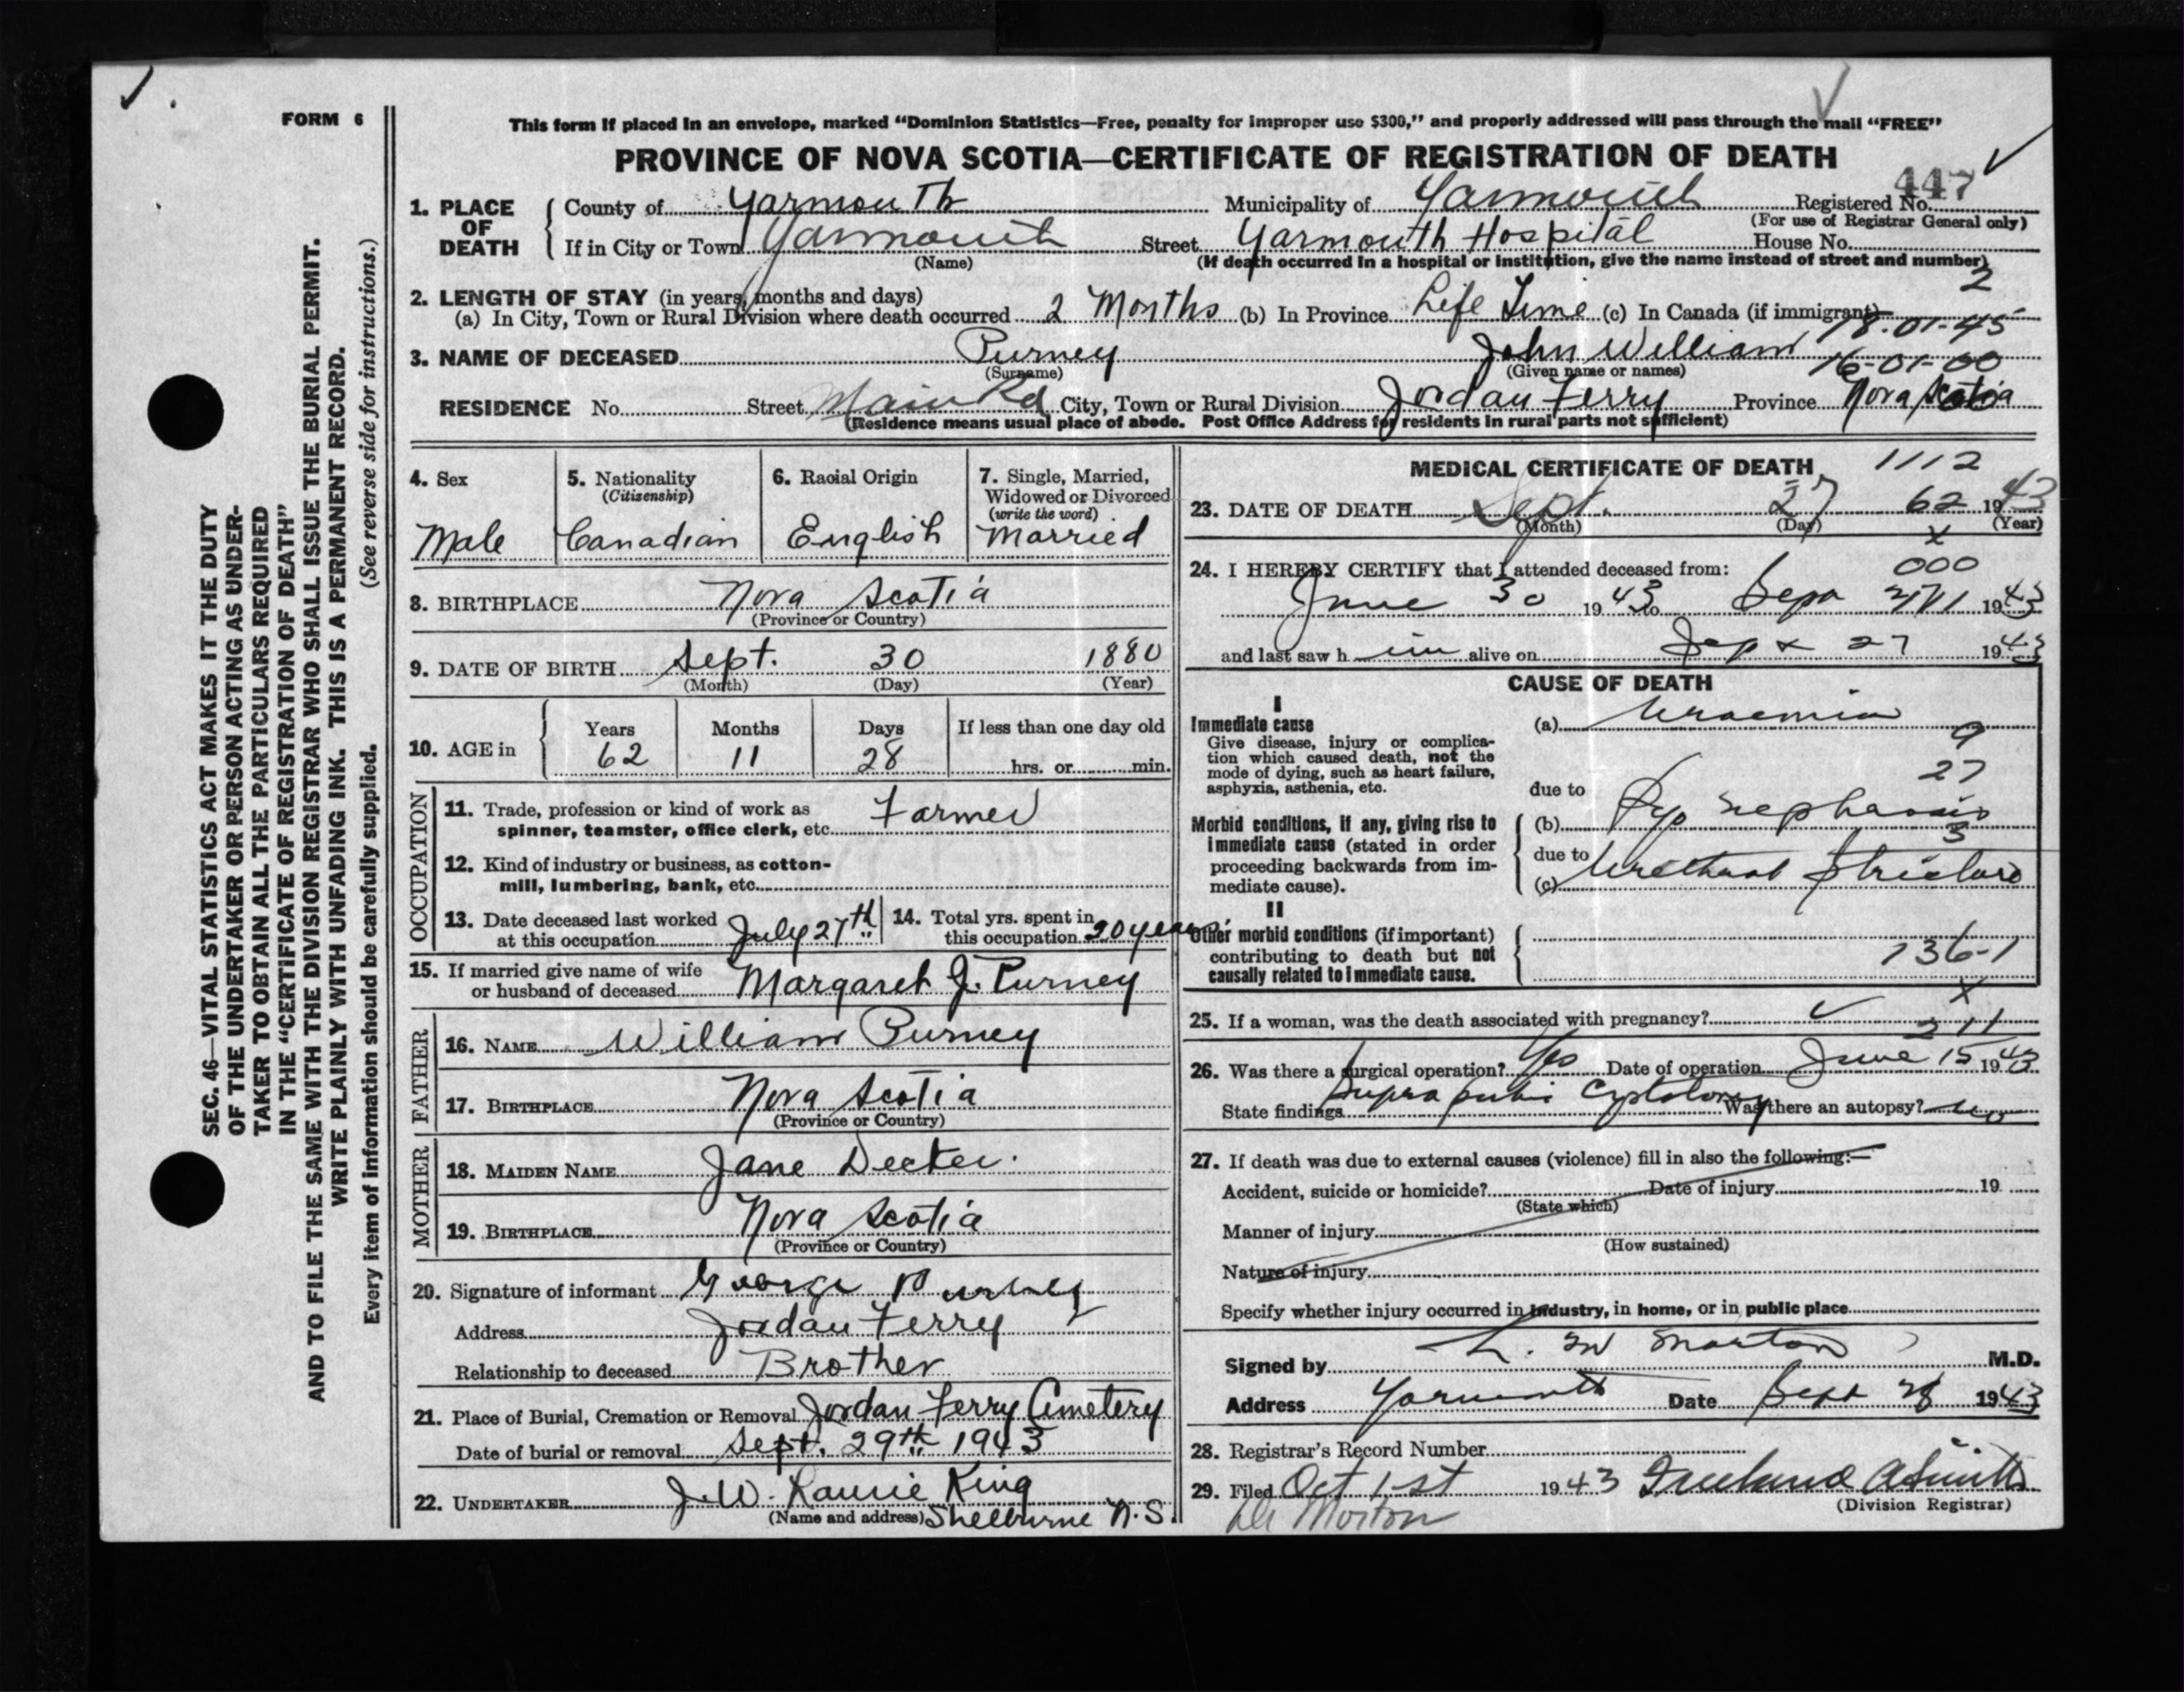 FORM 6
This form if placed in an envelope, marked "Dominion Statistics—Free, penalty for improper use $300," and properly addressed will pass through the mail "FREE"
PROVINCE OF NOVA SCOTIA—CERTIFICATE OF REGISTRATION OF DEATH
447
1. PLACE OF DEATH County of Yarmouth Municipality of Yarmouth Registered No.
(For use of Registrar General only)
If in City or Town Yarmouth Street Yarmouth Hospital House No.
(Name) (If death occurred in a hospital or institution, give the name instead of street and number)
2
2. LENGTH OF STAY (in years, months and days)
(a) In City, Town or Rural Division where death occurred 2 Months (b) In Province Life Time (c) In Canada (if immigrant)
18-01-45
3. NAME OF DECEASED Purney John William
(Surname) (Given name or names) 16-01-00
RESIDENCE No. Street Main Rd City, Town or Rural Division Jordan Ferry Province Nova Scotia
(Residence means usual place of abode. Post Office Address for residents in rural parts not sufficient)
4. Sex 5. Nationality (Citizenship) 6. Racial Origin 7. Single, Married, Widowed or Divorced (write the word)
Male Canadian English Married
8. BIRTHPLACE Nova Scotia
(Province or Country)
9. DATE OF BIRTH Sept. 30 1880
(Month) (Day) (Year)
10. AGE in Years Months Days If less than one day old
62 11 28 hrs. or min.
OCCUPATION
11. Trade, profession or kind of work as spinner, teamster, office clerk, etc. Farmer
12. Kind of industry or business, as cotton-mill, lumbering, bank, etc.
13. Date deceased last worked at this occupation July 27th 14. Total yrs. spent in this occupation 20 years
15. If married give name of wife or husband of deceased Margaret J. Purney
FATHER
16. NAME William Purney
17. BIRTHPLACE Nova Scotia
(Province or Country)
MOTHER
18. MAIDEN NAME Jane Decker.
19. BIRTHPLACE Nova Scotia
(Province or Country)
20. Signature of informant George Purney
Address Jordan Ferry
Relationship to deceased Brother
21. Place of Burial, Cremation or Removal Jordan Ferry Cemetery
Date of burial or removal Sept. 29th 1943
22. UNDERTAKER J. W. Laurie King
(Name and address) Shelburne N.S.
MEDICAL CERTIFICATE OF DEATH 1112
23. DATE OF DEATH Sept. 27 62 1943
(Month) (Day) (Year)
x
24. I HEREBY CERTIFY that I attended deceased from: 000
June 30 1943 to Sept 27 1943
and last saw him alive on Sept 27 1943
CAUSE OF DEATH
I
Immediate cause (a) Uraemia
Give disease, injury or complication which caused death, not the mode of dying, such as heart failure, asphyxia, asthenia, etc.
9
27
due to
Morbid conditions, if any, giving rise to immediate cause (stated in order proceeding backwards from immediate cause).
(b) Pyo nephrosis
3
due to
(c) Urethral Stricture
II
Other morbid conditions (if important) contributing to death but not causally related to immediate cause.
136-1
x
25. If a woman, was the death associated with pregnancy?
211
26. Was there a surgical operation? Yes Date of operation June 15 1943
State findings Supra pubic Cystotomy Was there an autopsy? no
27. If death was due to external causes (violence) fill in also the following:—
Accident, suicide or homicide? Date of injury 19
(State which)
Manner of injury
(How sustained)
Nature of injury
Specify whether injury occurred in industry, in home, or in public place
Signed by L. M Morton M.D.
Address Yarmouth Date Sept 28 1943
28. Registrar's Record Number
29. Filed Oct 1st 1943
(Division Registrar)
Dr Morton
SEC. 46—VITAL STATISTICS ACT MAKES IT THE DUTY
OF THE UNDERTAKER OR PERSON ACTING AS UNDER-
TAKER TO OBTAIN ALL THE PARTICULARS REQUIRED
IN THE "CERTIFICATE OF REGISTRATION OF DEATH"
AND TO FILE THE SAME WITH THE DIVISION REGISTRAR WHO SHALL ISSUE THE BURIAL PERMIT.
WRITE PLAINLY WITH UNFADING INK. THIS IS A PERMANENT RECORD.
Every item of information should be carefully supplied. (See reverse side for instructions.)